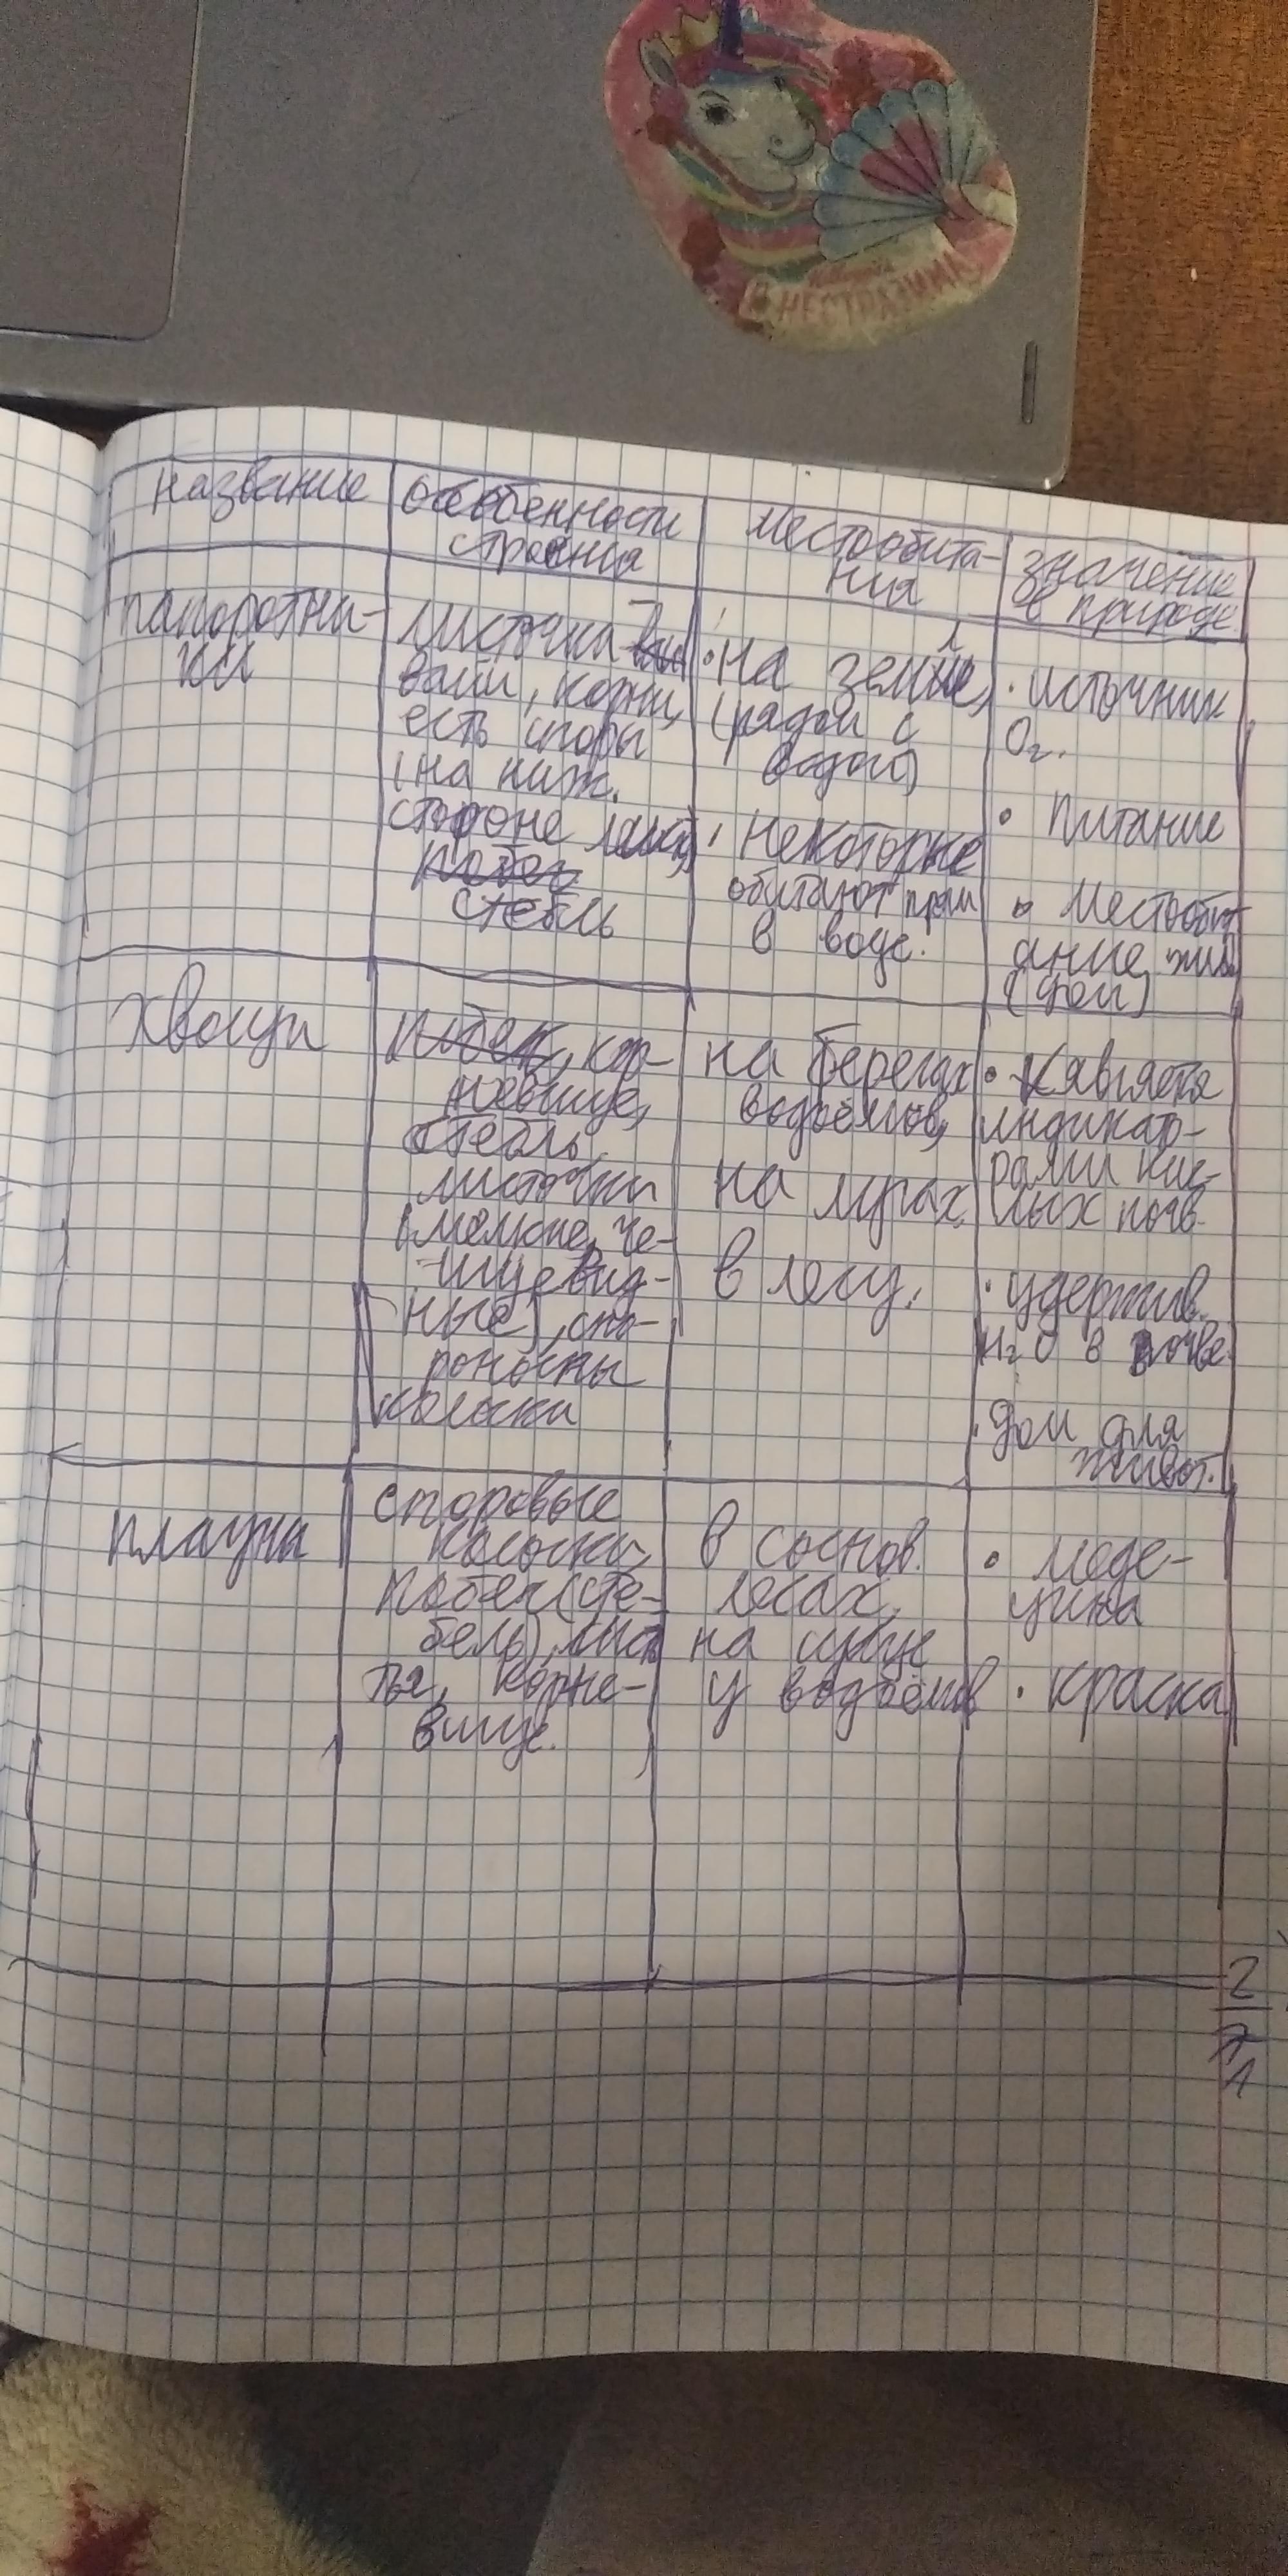 НЕСТРАЗИМА
название
особенности
строения
местообита-
ния
значение
в природе
папоротни-
ки
листочки -
вайи, корни,
есть споры
(на ниж.
стороне
стебль
• на земле,
(рядом с
водой)
• некоторые
обитают прям
в воде.
• источник
O₂.
• питание
• Местообит
ание, жив.
(дом)
Хвощи
побег, кор-
невище,
стебль,
листочки
(мелкие, че-
шуевид-
ные), спо-
роносны
колоски
на берегах
водоёмов,
на лугах,
в лесу.
• является
индикар-
рами кис-
лых почв.
• удержив.
H₂O в почве
• дом для
живот.
плауны
споровые
колоски,
побег (сте-
бель), лис
тья, корне-
вище.
в соснов.
лесах,
на суше
у водоёмов
• меде-
цина
• краска
2
7
1